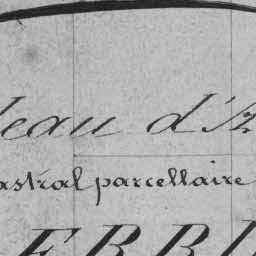 leau d'A
astral parcellaire
ERRI